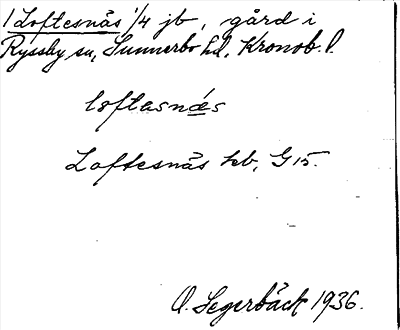 1 Loftesnäs 1/4 jb, gård i
Ryssby sn, Sunnerbo hd, Kronob. l.
loftasnæ̀s
Loftesnäs hb, G 15.
O. Segerbäck 1936.